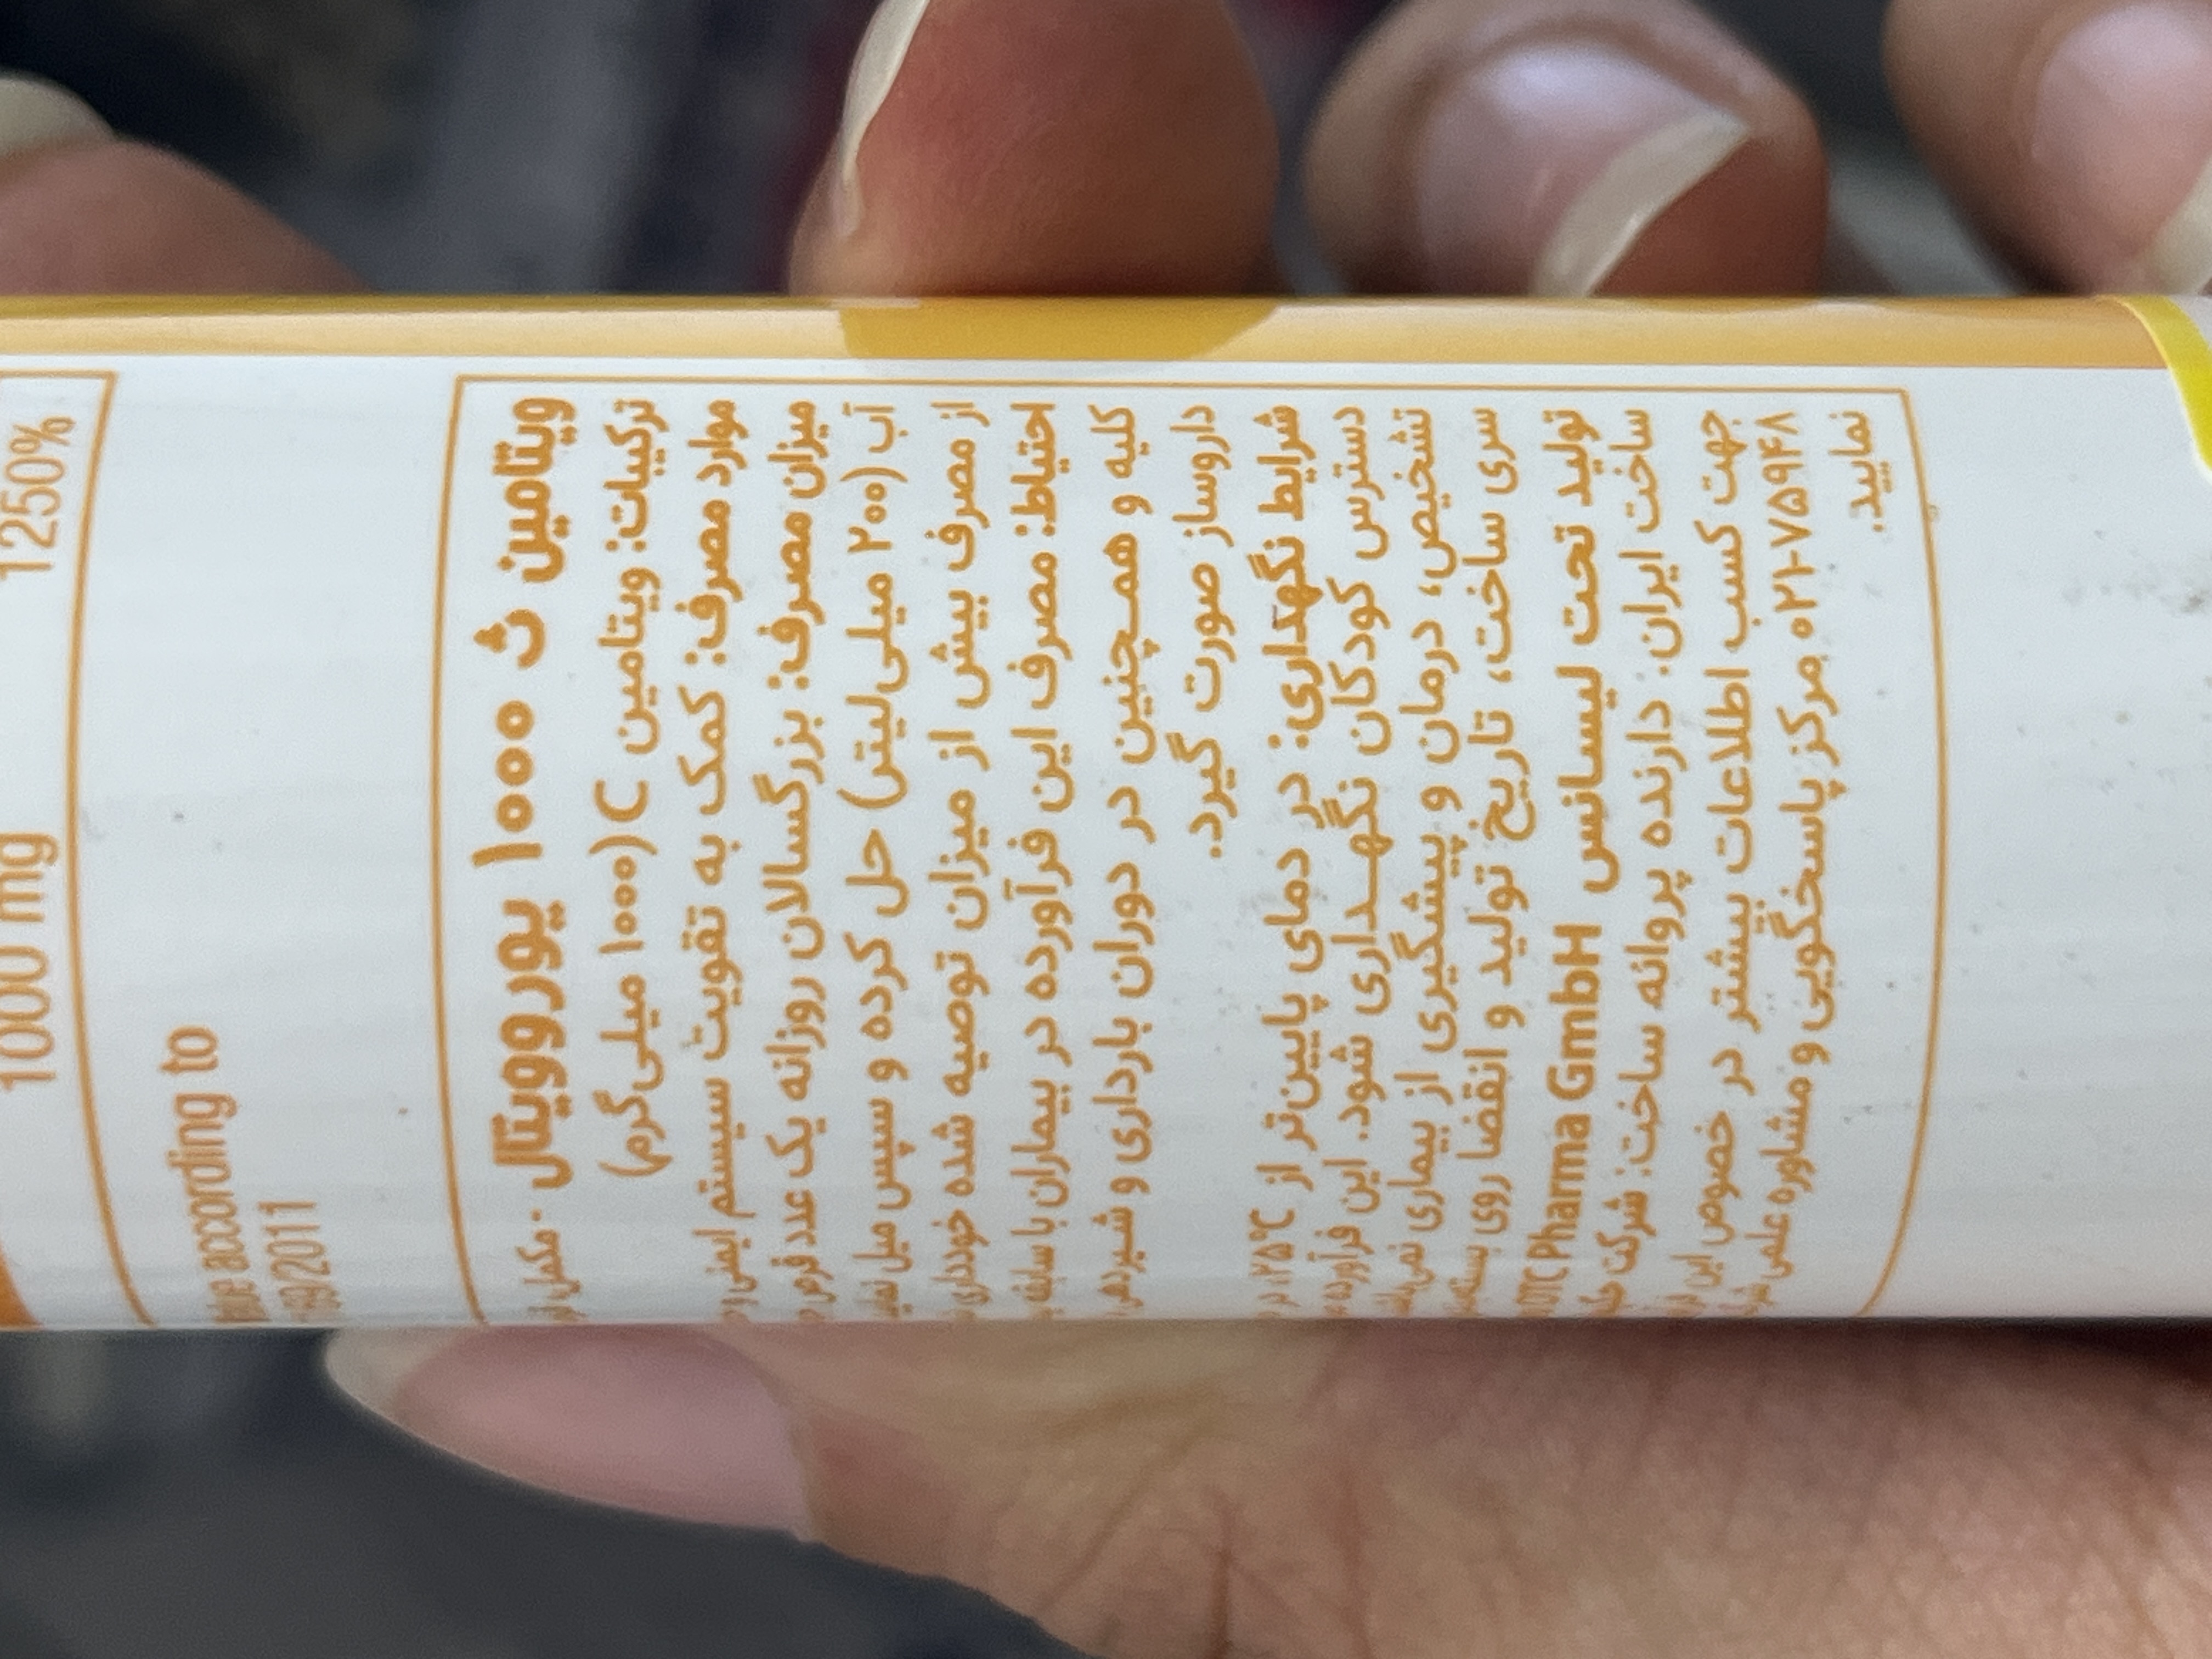 1000 mg 1250%
value according to
/2011
ویتامین ث ۱۰۰۰ یوروویتال - مکمل
ترکیبات: ویتامین C (۱۰۰۰ میلی‌گرم)
موارد مصرف: کمک به تقویت سیستم ایمنی و
میزان مصرف: بزرگسالان روزانه یک عدد قرص
آب (۲۰۰ میلی‌لیتر) حل کرده و سپس میل
از مصرف بیش از میزان توصیه شده خودداری
احتیاط: مصرف این فرآورده در بیماران با سابقه
کلیه و همچنین در دوران بارداری و شیردهی
داروساز صورت گیرد.
شرایط نگهداری: در دمای پایین‌تر از ۲۵°C، در
دسترس کودکان نگهداری شود. این فرآورده
تشخیص، درمان و پیشگیری از بیماری نمی‌باشد
سری ساخت، تاریخ تولید و انقضا روی بسته
تولید تحت لیسانس OTC Pharma GmbH
ساخت ایران. دارنده پروانه ساخت: شرکت
جهت کسب اطلاعات بیشتر در خصوص این
۰۲۱-۷۵۹۴۸ مرکز پاسخگویی و مشاوره علمی
نمایید.